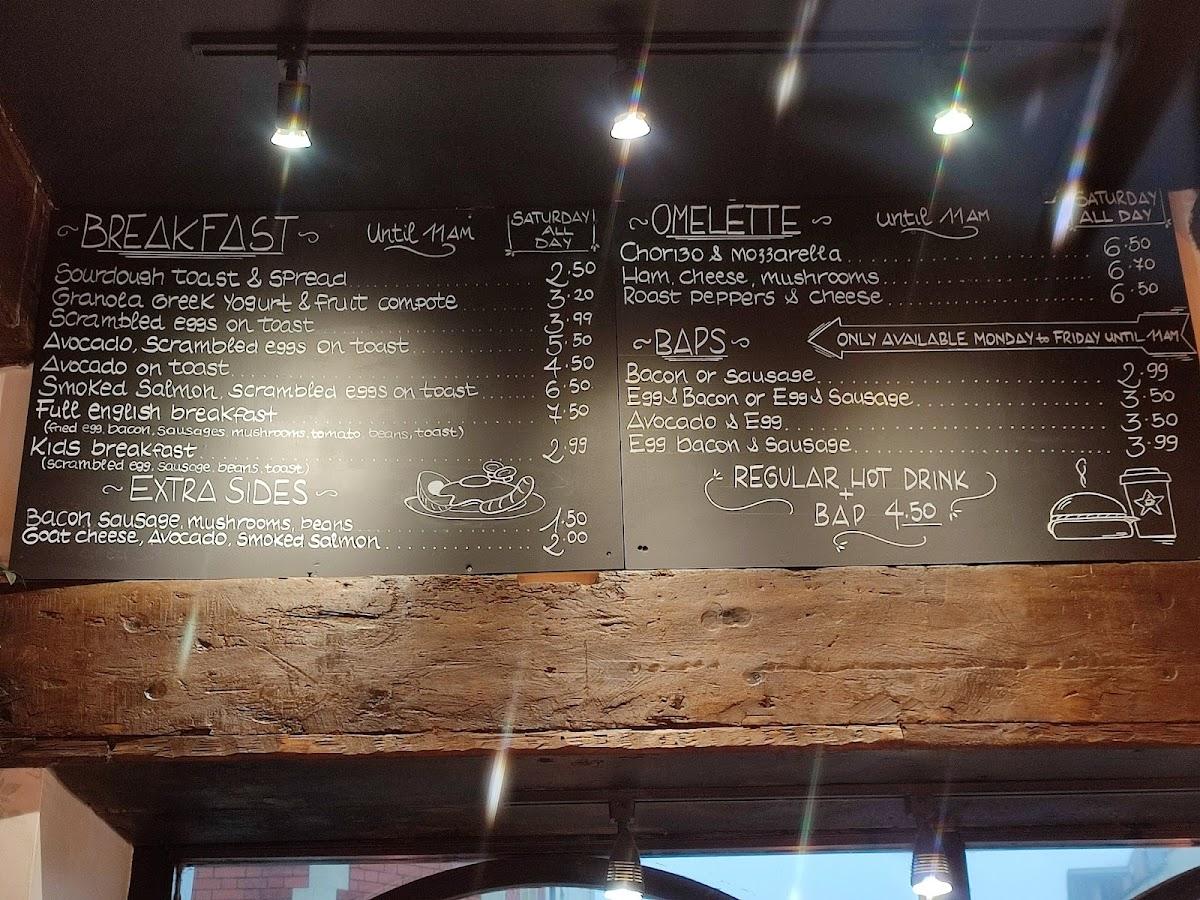 BREAKFAST until 11AM SATURDAY ALL DAY
Sourdough toast & spread 2.50
Granola Greek Yogurt & fruit compote 3.20
Scrambled eggs on toast 3.99
Avocado, Scrambled eggs on toast 5.50
Avocado on toast 4.50
Smoked Salmon, scrambled eggs on toast 6.50
Full english breakfast 7.50
(fried egg, bacon, sausages, mushrooms, tomato, beans, toast)
Kids breakfast 2.99
(scrambled egg, sausage, beans, toast)
EXTRA SIDES
Bacon sausage, mushrooms, beans 1.50
Goat cheese, Avocado, Smoked Salmon 2.00
OMELETTE until 11AM SATURDAY ALL DAY
Chorizo & mozzarella 6.50
Ham, cheese, mushrooms 6.70
Roast peppers & cheese 6.50
BAPS ONLY AVAILABLE MONDAY to FRIDAY UNTIL 11AM
Bacon or sausage 2.99
Egg & Bacon or Egg & Sausage 3.50
Avocado & Egg 3.50
Egg bacon & sausage 3.99
REGULAR HOT DRINK
+
BAP 4.50